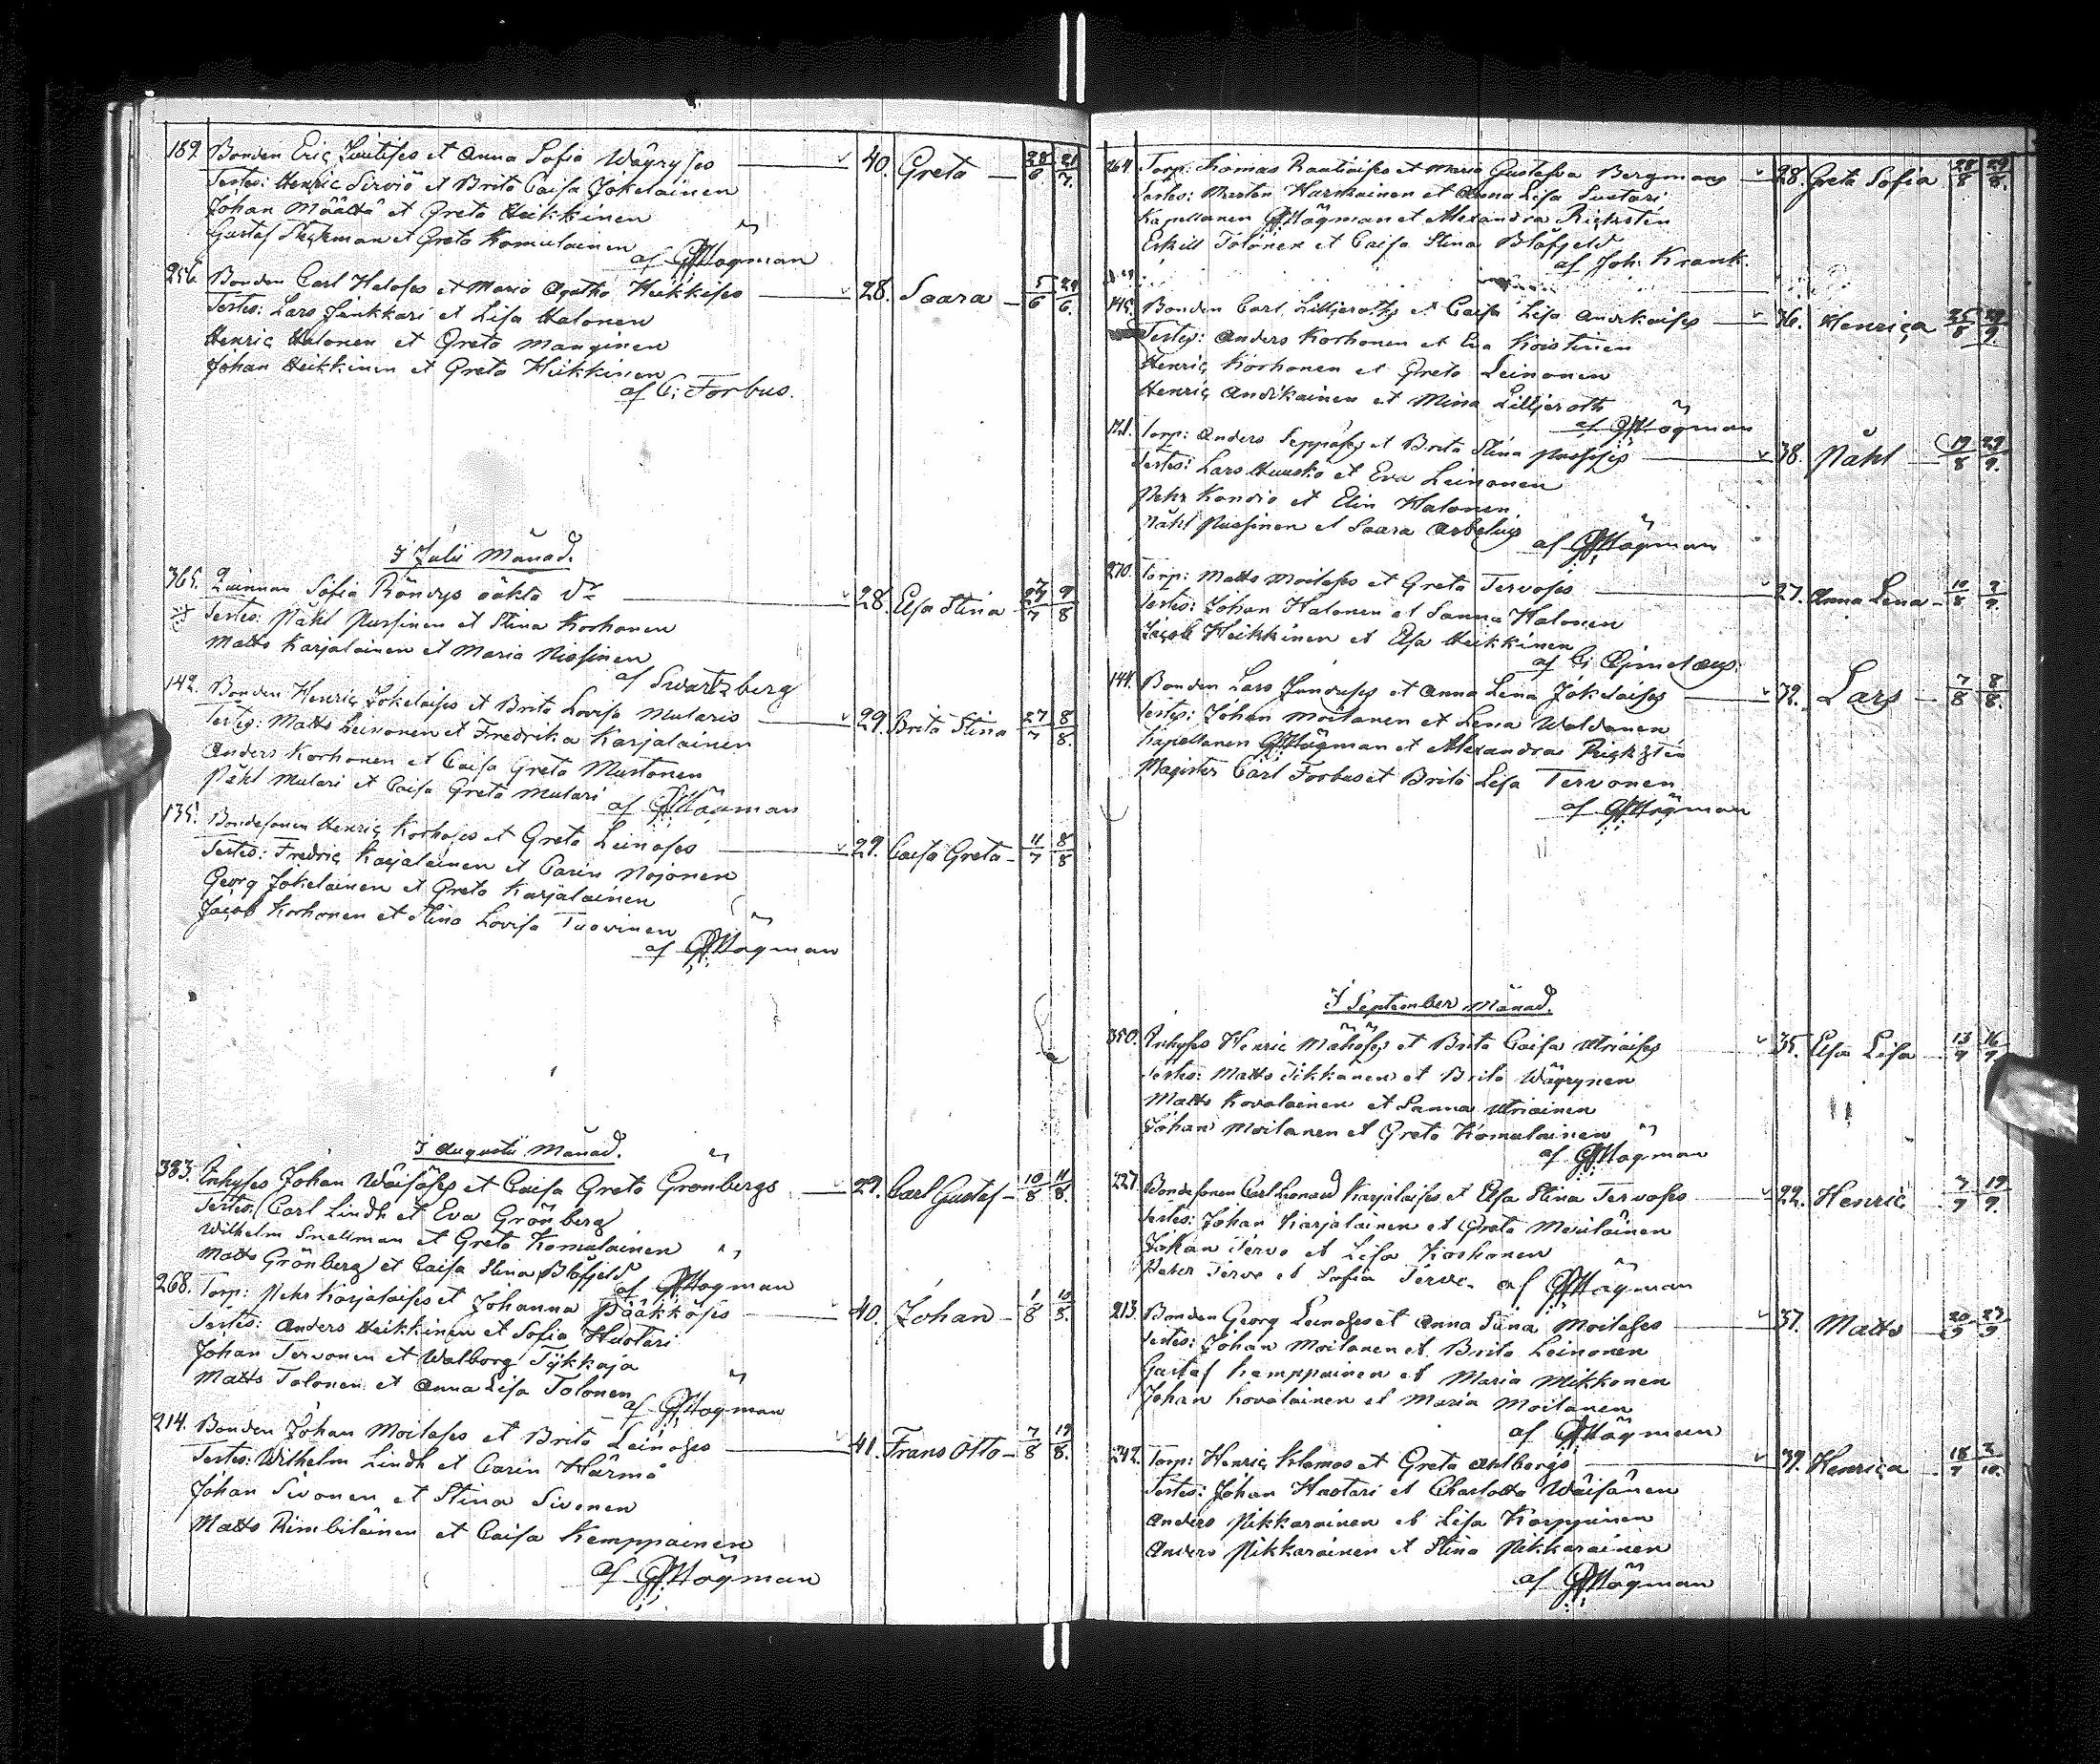 189. Bonden Eric Juutises et Anna Sofia Wäyryses 40. Greta 28/6 21/7.
Testes: Henric Serviö et Brita Caisa Jokelainen
Johan Määttä et Greta Heikkinen
Gustaf et Greta Komulainen
af GHHögman
256. Bonden Carl Haloses et Maria Agatha Heikkises 28. Saara 5/6 24/6.
Testes: Lars Jinkkari et Lisa Halonen
Henric Halonen et Greta Manginen
Johan Heikkinen et Greta Heikkinen
af C: Forbus.
I Julii Månad.
365. Quinnan Sofia Röndys oäkta dr 28. Elsa Stina 7 9/8
Testes: Påhl Pussinen et Stina Korhonen
Matts Karjalainen et Maria Nissinen
af Swartzberg
142. Bonden Henric Jokelaises et Brita Lovisa Mularis 29. Brita Stina 27/7 8/8.
Testes: Matts Leinonen et Fredrika Karjalainen
Anders Korhonen et Caisa Greta Mustonen
Påhl Mulari et Caisa Greta Mulari
af GHHögman
135. Bondesonen Henric Korhoses et Greta Leinoses 29. Caisa Greta 11/7 8/8
Testes: Fredric Karjalainen et Carin Nojonen
Georg Jokelainen et Greta Karjalainen
Jacob Korhonen et Stina Lovisa Tuovinen
af GHHögman
I Augustii Månad.
383. Inhyses Johan Wäisäses et Caisa Greta Grönbergs 29. Carl Gustaf 10/8 11/8.
Testes: Carl Lindh et Eva Grönberg
Wilhelm Snellman et Greta Komulainen
Matts Grönberg et Caisa Stina Blåfjeld
af GHHögman
268. Torp: Pehr Karjalaises et Johanna Pääkköses 40. Johan 1/8 15/8.
Testes: Anders Heikkinen et Sofia Huotari
Johan Tervonen et Walborg Tykkaja
Matts Tolonen et Anna Lisa Tolonen
af GHHögman
214. Bonden Johan Moilases et Brita Leinoses 41. Frans Otto 7/8 19/8.
Testes: Wilhelm Lindh et Carin Härmä
Johan Sivonen et Stina Sivonen
Matts Rimbiläinen et Caisa Kemppainen
af GHHögman
264. Torp: Thomas Raatiaises et Maria Gustafva Bergmans 28. Greta Sofia 28/8 29/8.
Testes: Marten Karskainen et Anna Lisa Suutari
Kapellanen GHHögman et Alexandra Ricksten
Eskill Tolonen et Caisa Stina Blåfjeld
af Joh: Krank.
145. Bonden Carl Lilljeroths et Caisa Lisa Andikaises 36. Henrica 25/8 29/9.
Testes: Anders Korhonen et Eva Koistinen
Henric Korhonen et Greta Leinonen
Henric Andikainen et Mina Lilljeroth
af GHHögman
121. Torp: Anders Seppäses et Brita Stina Pussises 38. Påhl 19/8 29/9.
Testes: Lars Huusko et Eva Leinonen
Pehr Kondio et Elin Halonen
Påhl Pussinen et Saara Arbelius
af GHHögman
270. Torp: Matts Moilases et Greta Tervoses 27. Anna Lena 10/8 2/9.
Testes: Johan Halonen et Sanna Halonen
Jacob Heikkinen et Elsa Heikkinen
af C:
144. Bonden Lars Junduses et Anna Lena Jokelaises 32. Lars 7/8 8/8.
Testes: Johan Moilanen et Lena Waldanen
Kapellanen GHHögman et Alexandra Rickstén
Magister Carl Forbus et Brita Lisa Tervonen
af GHHögman
I September Månad.
350. Inhyses Henric Mähöses et Brita Caisa Utriaises 35. Elsa Lisa 13/9 16/9
Testes: Matts Tikkanen et Brita Wäyrynen
Matts Kovalainen et Sanna Utriainen
Johan Moilanen et Greta Komulainen
af GHHögman
227. Bondesonen Carl Leonard Karjalaises et Elsa Stina Tervoses 22. Henric 7/9 19/9.
Testes: Johan Karjalainen et Greta Meriläinen
Johan Tervo et Lisa Korhonen
Petter Tervo et Sofia Tervo. af GHHögman
213. Bonden Georg Leinoses et Anna Stina Moilases 37. Matts 20/9 27/9
Testes: Johan Moilanen et Brita Leinonen
Gustaf Kemppainen et Maria Mikkonen
Johan Kovalainen et Maria Moilanen
af GHHögman
242. Torp: Henric Klemos et Greta Ahlbergs 39. Henrica 18/9 2/10.
Testes: Johan Huotari et Charlotta Wäisänen
Anders Pikkarainen et Lisa Karppinen
Anders Pikkarainen et Stina Pikkarainen
af GHHögman